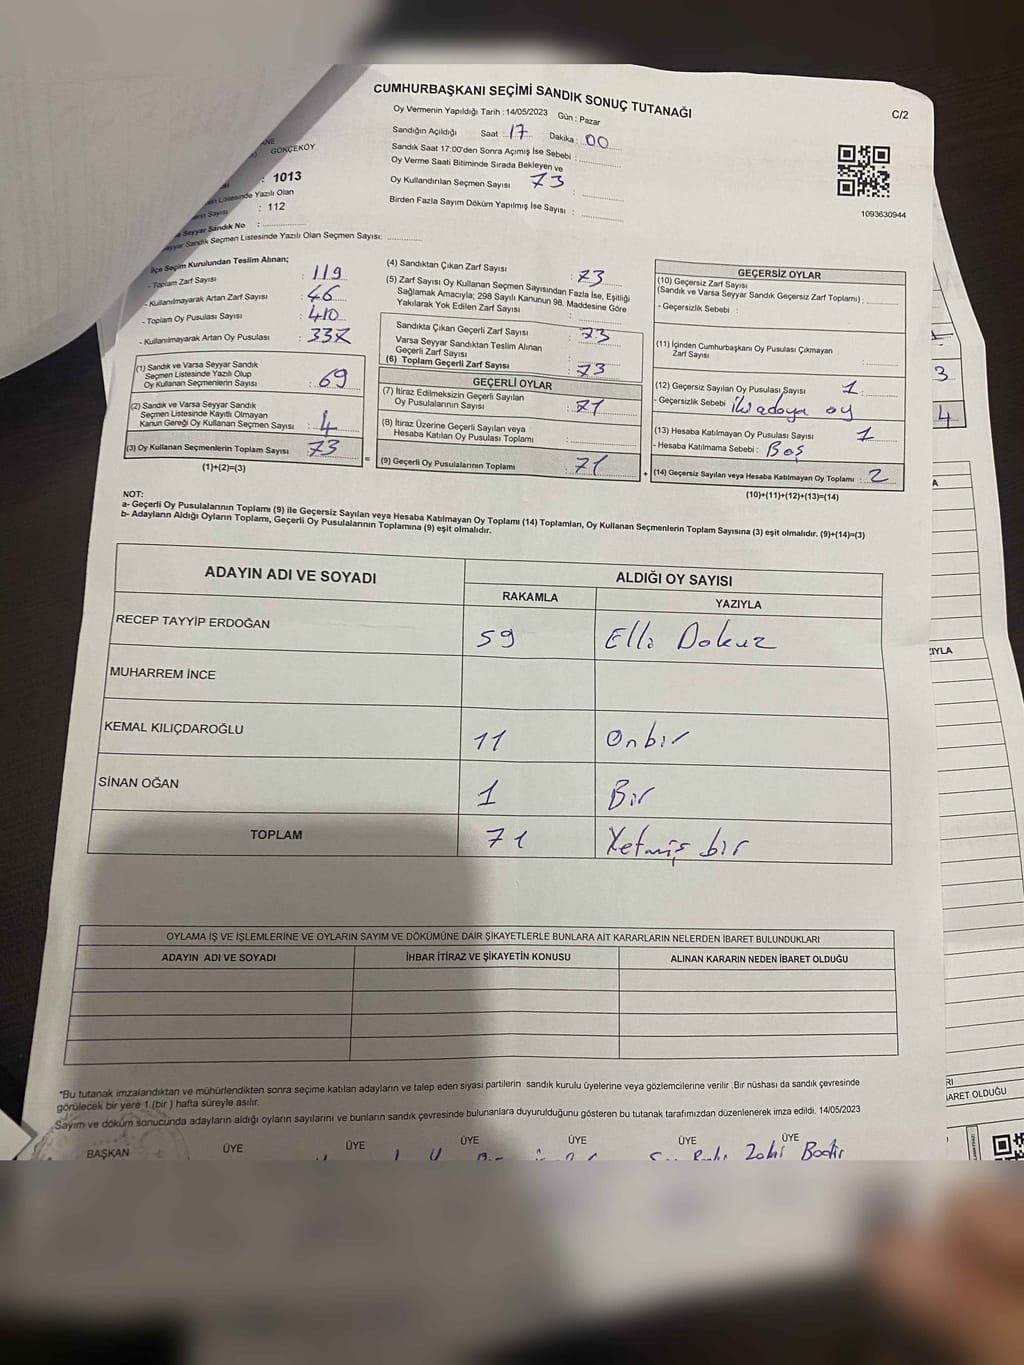 CUMHURBAŞKANI SEÇİMİ SANDIK SONUÇ TUTANAĞI
C/2
Oy Vermenin Yapıldığı Tarih : 14/05/2023 Gün : Pazar
Sandığın Açıldığı Saat : 17 Dakika : 00
Sandık Saat 17:00'den Sonra Açımış İse Sebebi :
Oy Verme Saati Bitiminde Sırada Bekleyen ve
Oy Kullandırılan Seçmen Sayısı 73 :
Birden Fazla Sayım Döküm Yapılmış İse Sayısı :
1093630944
GÖKÇEKÖY
: 1013
Listesinde Yazılı Olan
: 112
Seyyar Sandık No :
Seyyar Sandık Seçmen Listesinde Yazılı Olan Seçmen Sayısı:
İlçe Seçim Kurulundan Teslim Alınan;
- Toplam Zarf Sayısı : 119
- Kullanılmayarak Artan Zarf Sayısı : 46
- Toplam Oy Pusulası Sayısı : 410
- Kullanılmayarak Artan Oy Pusulası :
(1) Sandık ve Varsa Seyyar Sandık
Seçmen Listesinde Yazılı Olup
Oy Kullanan Seçmenlerin Sayısı : 69
(2) Sandık ve Varsa Seyyar Sandık
Seçmen Listesinde Kayıtlı Olmayan
Kanun Gereği Oy Kullanan Seçmen Sayısı : 4
(3) Oy Kullanan Seçmenlerin Toplam Sayısı : 73
(1)+(2)=(3)
=
(4) Sandıktan Çıkan Zarf Sayısı : 73
(5) Zarf Sayısı Oy Kullanan Seçmen Sayısından Fazla İse, Eşitliği
Sağlamak Amacıyla; 298 Sayılı Kanunun 98. Maddesine Göre
Yakılarak Yok Edilen Zarf Sayısı :
Sandıkta Çıkan Geçerli Zarf Sayısı : 73
Varsa Seyyar Sandıktan Teslim Alınan
Geçerli Zarf Sayısı :
(6) Toplam Geçerli Zarf Sayısı : 73
GEÇERLİ OYLAR
(7) İtiraz Edilmeksizin Geçerli Sayılan
Oy Pusulalarının Sayısı : 71
(8) İtiraz Üzerine Geçerli Sayılan veya
Hesaba Katılan Oy Pusulası Toplamı :
(9) Geçerli Oy Pusulalarının Toplamı : 71
+
GEÇERSİZ OYLAR
(10) Geçersiz Zarf Sayısı
(Sandık ve Varsa Seyyar Sandık Geçersiz Zarf Toplamı) :
- Geçersizlik Sebebi :
(11) İçinden Cumhurbaşkanı Oy Pusulası Çıkmayan
Zarf Sayısı :
(12) Geçersiz Sayılan Oy Pusulası Sayısı : 1
- Geçersizlik Sebebi : iki adaya oy
(13) Hesaba Katılmayan Oy Pusulası Sayısı : 1
- Hesaba Katılmama Sebebi : Boş
(14) Geçersiz Sayılan veya Hesaba Katılmayan Oy Toplamı : 2
(10)+(11)+(12)+(13)=(14)
3
4
NOT:
a- Geçerli Oy Pusulalarının Toplamı (9) ile Geçersiz Sayılan veya Hesaba Katılmayan Oy Toplamı (14) Toplamları, Oy Kullanan Seçmenlerin Toplam Sayısına (3) eşit olmalıdır. (9)+(14)=(3)
b- Adayların Aldığı Oyların Toplamı, Geçerli Oy Pusulalarının Toplamına (9) eşit olmalıdır.
ADAYIN ADI VE SOYADI
ALDIĞI OY SAYISI
RAKAMLA YAZIYLA
RECEP TAYYİP ERDOĞAN 59 Elli Dokuz
MUHARREM İNCE
KEMAL KILIÇDAROĞLU 11 Onbir
SİNAN OĞAN 1 Bir
TOPLAM 71 Yetmiş bir
OYLAMA İŞ VE İŞLEMLERİNE VE OYLARIN SAYIM VE DÖKÜMÜNE DAİR ŞİKAYETLERLE BUNLARA AİT KARARLARIN NELERDEN İBARET BULUNDUKLARI
ADAYIN ADI VE SOYADI İHBAR İTİRAZ VE ŞİKAYETİN KONUSU ALINAN KARARIN NEDEN İBARET OLDUĞU
*Bu tutanak imzalandıktan ve mühürlendikten sonra seçime katılan adayların ve talep eden siyasi partilerin sandık kurulu üyelerine veya gözlemcilerine verilir .Bir nüshası da sandık çevresinde
görülecek bir yere 1 (bir ) hafta süreyle asılır.
Sayım ve döküm sonucunda adayların aldığı oyların sayılarını ve bunların sandık çevresinde bulunanlara duyurulduğunu gösteren bu tutanak tarafımızdan düzenlenerek imza edildi. 14/05/2023
BAŞKAN ÜYE ÜYE ÜYE ÜYE ÜYE ÜYE